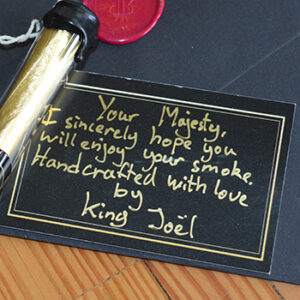 Your Majesty,
I sincerely hope you
will enjoy your smoke.
Handcrafted with love
by
King Joël